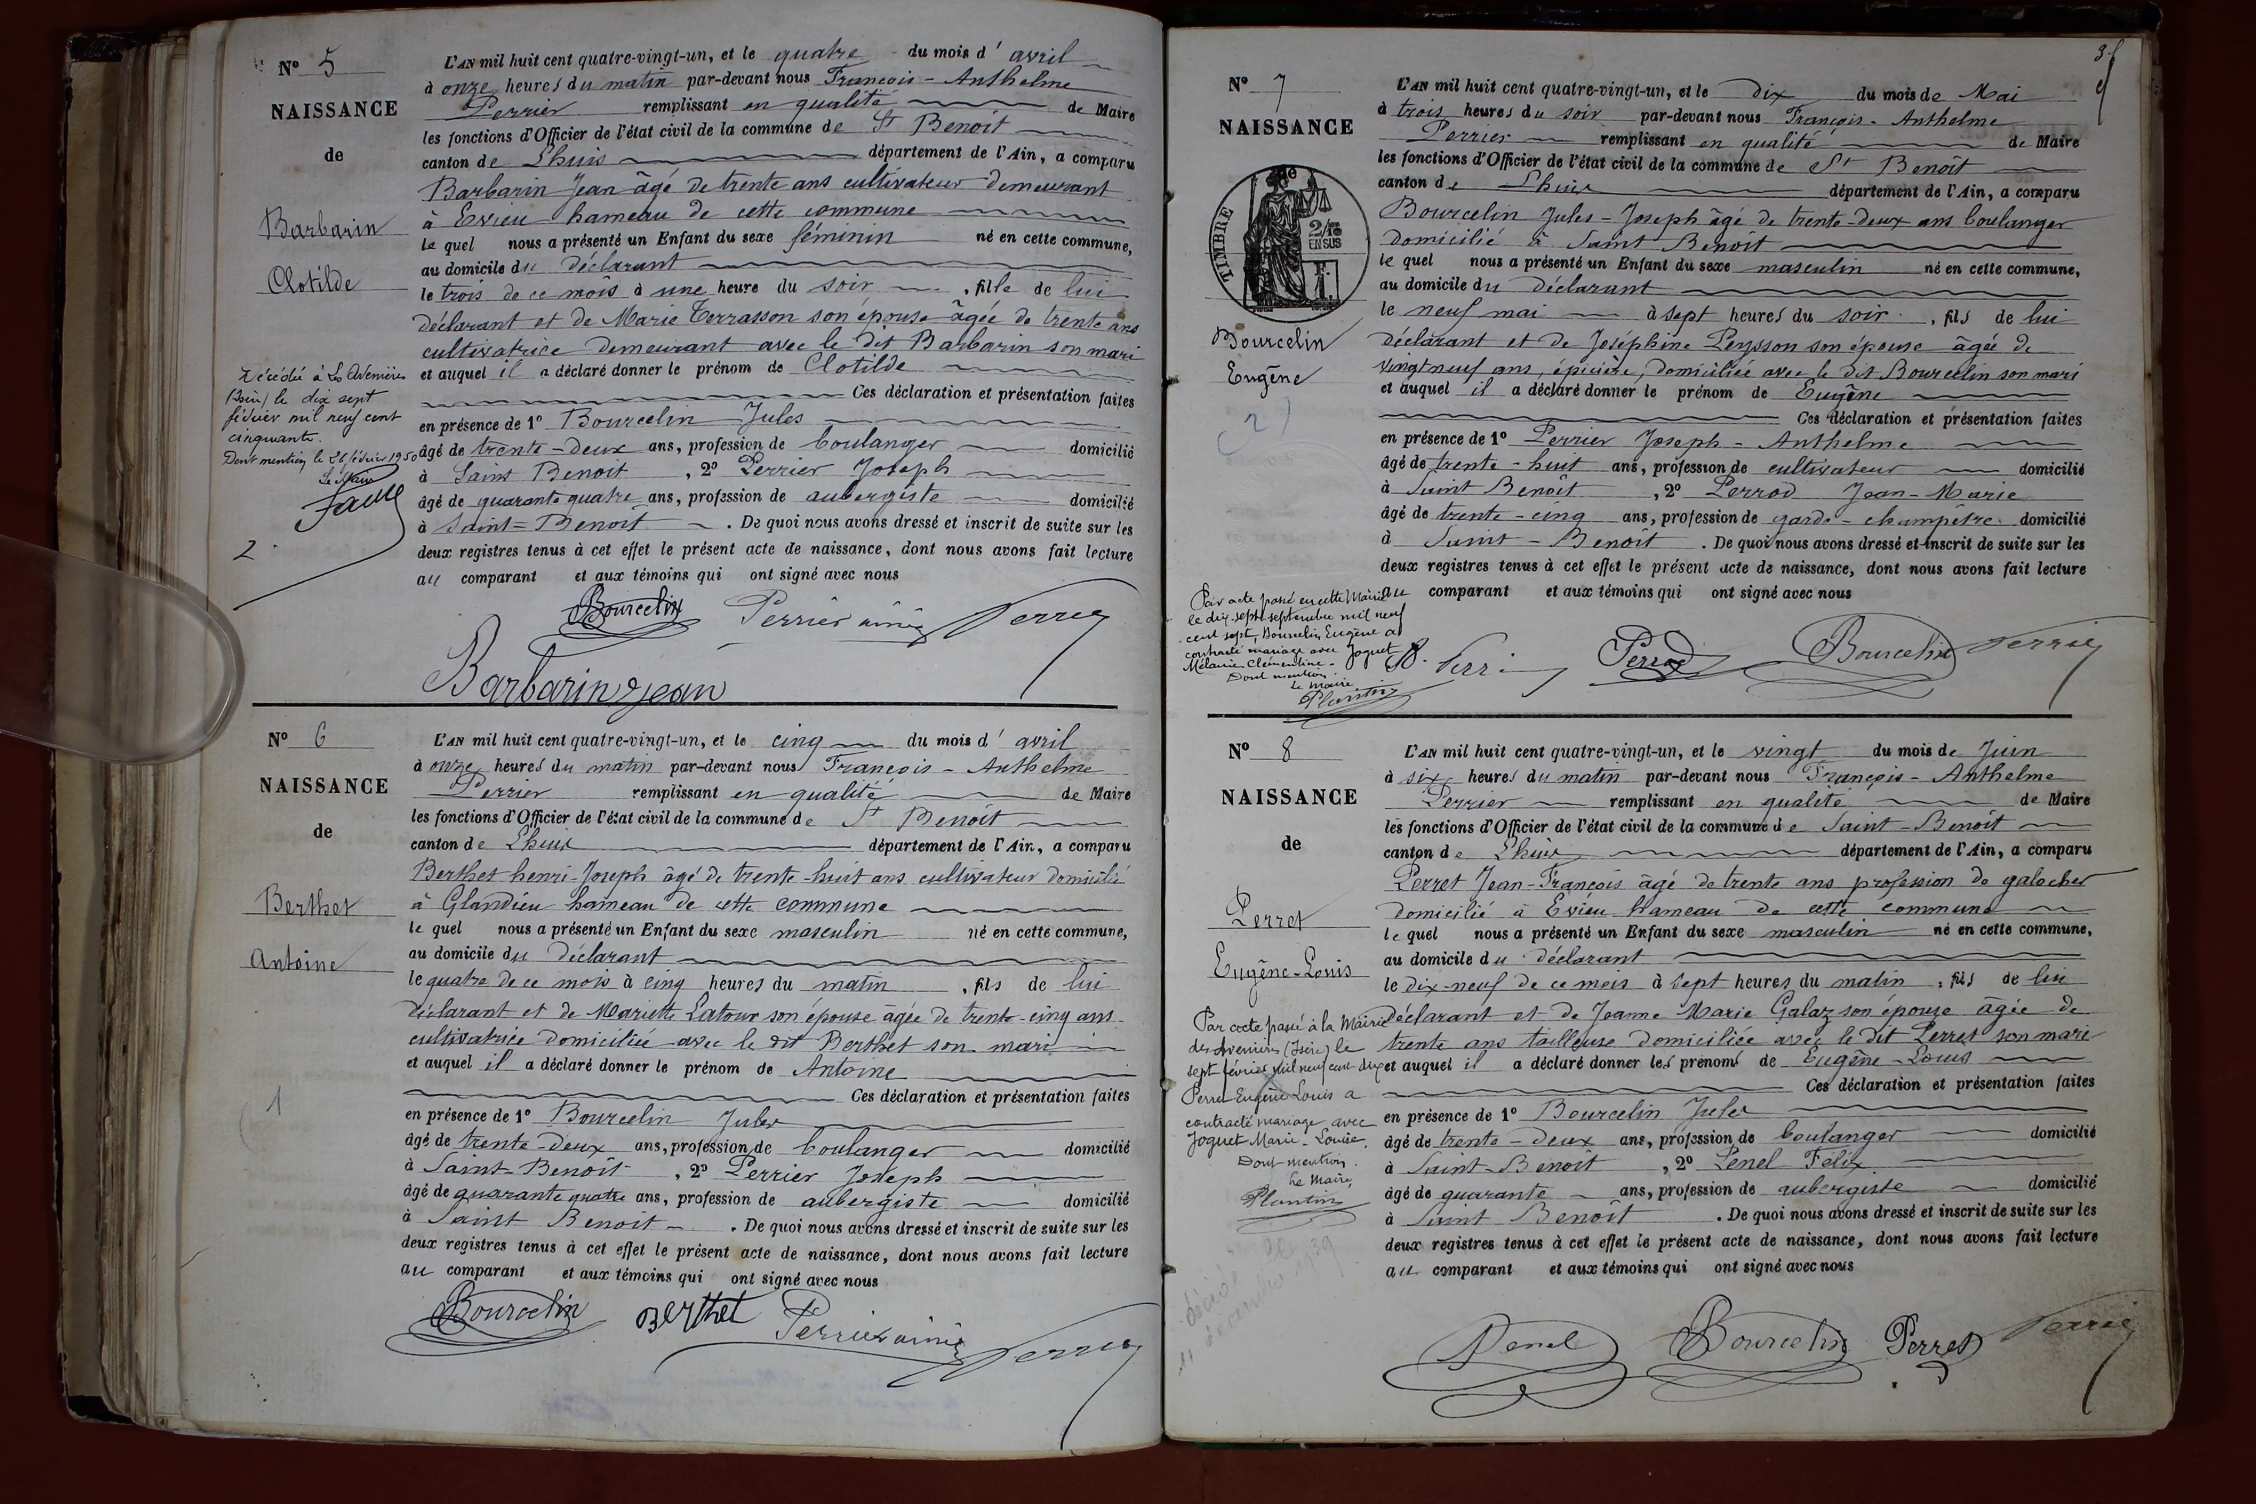 N° 5
NAISSANCE
de
Barbarin
Clotilde
Décédée à Les Avenières
(Isère) le dix sept
février mil neuf cent
cinquante.
Dont mention le 26 février 1950
Le Maire
2
L'AN mil huit cent quatre-vingt-un, et le quatre du mois d' avril
à onze heures du matin par-devant nous François-Anthelme
Perrier remplissant en qualité de Maire
les fonctions d'Officier de l'état civil de la commune de St Benoit
canton de Lhuis département de l'Ain, a comparu
Barbarin Jean âgé de trente ans cultivateur demeurant
à Evieu hameau de cette commune
le quel nous a présenté un Enfant du sexe féminin né en cette commune,
au domicile du déclarant
le trois de ce mois à une heure du soir , fille de lui
déclarant et de Marie Terrasson son épouse âgée de trente ans
cultivatrice demeurant avec le dit Barbarin son mari
et auquel il a déclaré donner le prénom de Clotilde
Ces déclaration et présentation faites
en présence de 1° Bourcelin Jules
âgé de trente-deux ans, profession de boulanger domicilié
à Saint Benoit , 2° Perrier Joseph
âgé de quarante quatre ans, profession de aubergiste domicilié
à Saint=Benoit . De quoi nous avons dressé et inscrit de suite sur les
deux registres tenus à cet effet le présent acte de naissance, dont nous avons fait lecture
au comparant et aux témoins qui ont signé avec nous
Bourcelin Perrier ainé Perrier
Barbarin Jean
N° 6
NAISSANCE
de
Berthet
Antoine
1
L'AN mil huit cent quatre-vingt-un, et le cinq du mois d' avril
à onze heures du matin par-devant nous François-Anthelme
Perrier remplissant en qualité de Maire
les fonctions d'Officier de l'état civil de la commune de St Benoit
canton de Lhuis département de l'Ain, a comparu
Berthet henri-Joseph âgé de trente-huit ans cultivateur domicilié
à Glandieu hameau de cette commune
le quel nous a présenté un Enfant du sexe masculin né en cette commune,
au domicile du déclarant
le quatre de ce mois à cinq heures du matin , fils de lui
déclarant et de Mariette Latour son épouse âgée de trente-cinq ans
cultivatrice domiciliée avec le dit Berthet son mari
et auquel il a déclaré donner le prénom de Antoine
Ces déclaration et présentation faites
en présence de 1° Bourcelin Jules
âgé de trente-deux ans, profession de boulanger domicilié
à Saint-Benoît , 2° Perrier Joseph
âgé de quarante quatre ans, profession de aubergiste domicilié
à Saint Benoit . De quoi nous avons dressé et inscrit de suite sur les
deux registres tenus à cet effet le présent acte de naissance, dont nous avons fait lecture
au comparant et aux témoins qui ont signé avec nous
Bourcelin Berthet Perrier ainé Perrier
N° 7
NAISSANCE
de
TIMBRE
2/10
EN SUS
Bourcelin
Eugène
2
Par acte passé en cette Mairie
le dix-sept septembre mil neuf
cent sept, Bourcelin Eugène a
contracté mariage avec Joguet
Mélanie Clémentine.
Dont mention
Le Maire
Plantin
L'AN mil huit cent quatre-vingt-un, et le dix du mois de Mai
à trois heures du soir par-devant nous François-Anthelme
Perrier remplissant en qualité de Maire
les fonctions d'Officier de l'état civil de la commune de St Benoit
canton de Lhuis département de l'Ain, a comparu
Bourcelin Jules-Joseph âgé de trente-deux ans boulanger
domicilié à Saint Benoit
le quel nous a présenté un Enfant du sexe masculin né en cette commune,
au domicile du déclarant
le neuf mai à sept heures du soir , fils de lui
déclarant et de Joséphine Peysson son épouse âgée de
vingt neuf ans, épicière, domiciliée avec le dit Bourcelin son mari
et auquel il a déclaré donner le prénom de Eugène
Ces déclaration et présentation faites
en présence de 1° Perrier Joseph-Anthelme
âgé de trente-huit ans, profession de cultivateur domicilié
à Saint Benoît , 2° Perrod Jean-Marie
âgé de trente-cinq ans, profession de garde-champêtre domicilié
à Saint-Benoit . De quoi nous avons dressé et inscrit de suite sur les
deux registres tenus à cet effet le présent acte de naissance, dont nous avons fait lecture
au comparant et aux témoins qui ont signé avec nous
Perrod Bourcelin Perrier
N° 8
NAISSANCE
de
Perret
Eugène-Louis
Par acte passé à la Mairie
des Avenières (Isère) le
sept février mil neuf cent dix
Perret Eugène Louis a
contracté mariage avec
Joguet Marie-Louise.
Dont mention.
Le Maire,
Plantin
L'AN mil huit cent quatre-vingt-un, et le vingt du mois de Juin
à six heures du matin par-devant nous François-Anthelme
Perrier remplissant en qualité de Maire
les fonctions d'Officier de l'état civil de la commune de Saint-Benoit
canton de Lhuis département de l'Ain, a comparu
Perret Jean-François âgé de trente ans profession de galocher
domicilié à Evieu hameau de cette commune
le quel nous a présenté un Enfant du sexe masculin né en cette commune,
au domicile du déclarant
le dix-neuf de ce mois à sept heures du matin , fils de lui
déclarant et de Jeanne Marie Galaz son épouse âgée de
trente ans tailleuse domiciliée avec le dit Perret son mari
et auquel il a déclaré donner les prénoms de Eugène-Louis
Ces déclaration et présentation faites
en présence de 1° Bourcelin Jules
âgé de trente-deux ans, profession de boulanger domicilié
à Saint-Benoit , 2° Penel Félix
âgé de quarante ans, profession de aubergiste domicilié
à Saint Benoît . De quoi nous avons dressé et inscrit de suite sur les
deux registres tenus à cet effet le présent acte de naissance, dont nous avons fait lecture
au comparant et aux témoins qui ont signé avec nous
Penel Bourcelin Perret Perrier